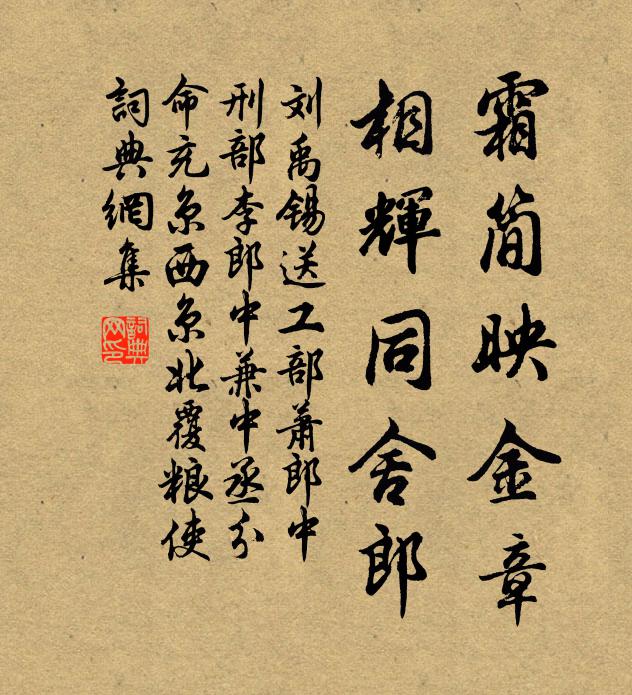 霜简映金章
相輝同舍郎
刘禹锡送工部萧郎中
刑部李郎中兼中丞分
命充京西京北覆粮使
詞典網集
詞典
网印